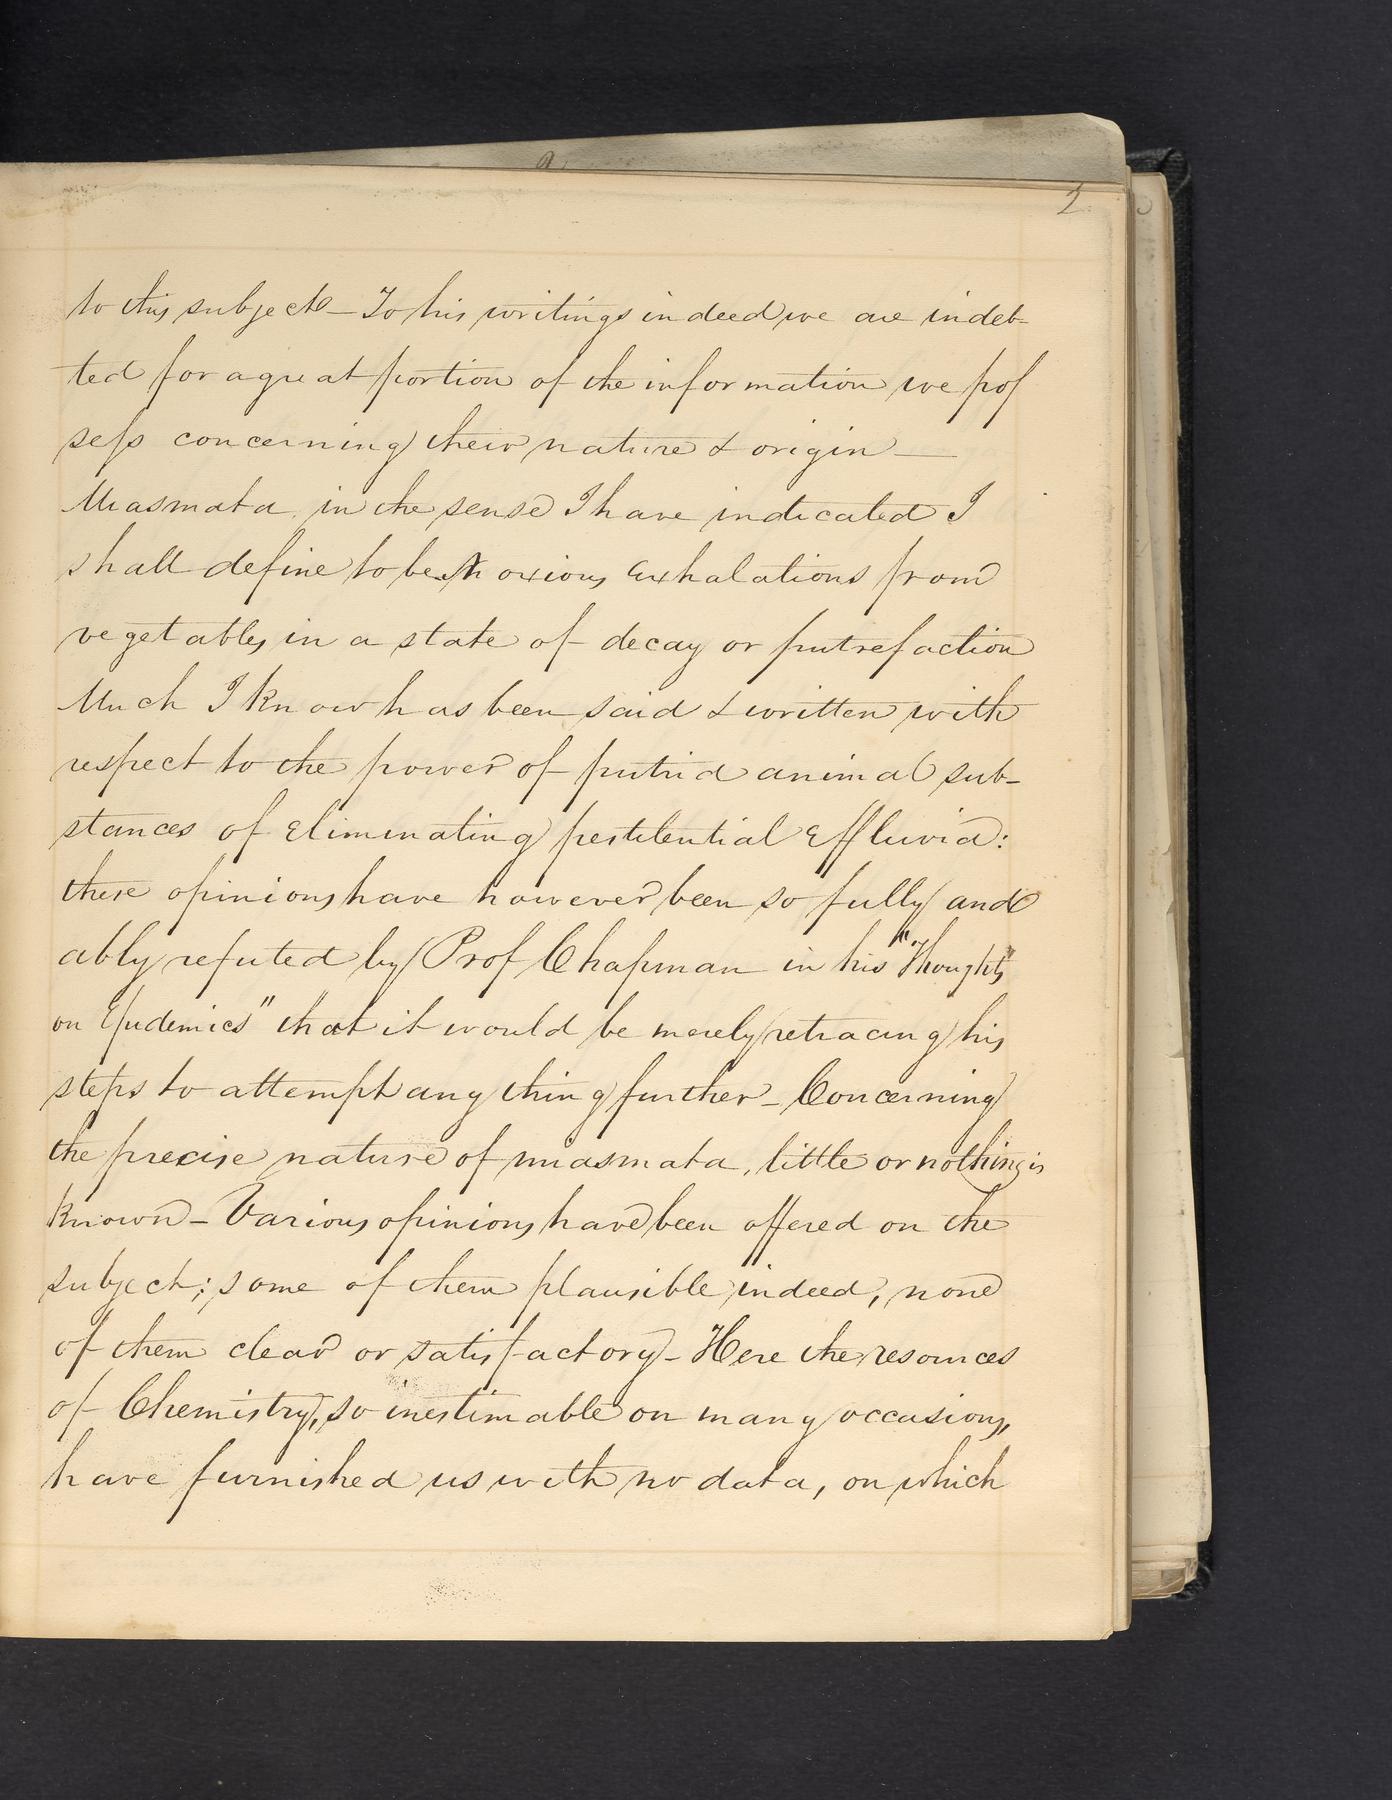 2
to this subject – To his writings indeed we are indeb-
ted for a great portion of the information we pos
sess concerning their nature & origin —
Miasmata in the sense I have indicated I
shall define to be Noxious exhalations from
vegetables in a state of decay or putrefaction
Much I know has been said & written with
respect to the power of putrid animal sub-
stances of eliminating pestilential effluvia:
these opinions have however been so fully and
ably refuted by Prof Chapman in his "Thoughts
on Epidemics" that it would be merely retracing his
steps to attempt any thing further – Concerning
the precise nature of miasmata, little or nothing is
known – Various opinions have been offered on the
subject; some of them plausible indeed, none
of them clear or satisfactory – Here the resources
of Chemistry, so inestimable on many occasions,
have furnished us with no data, on which